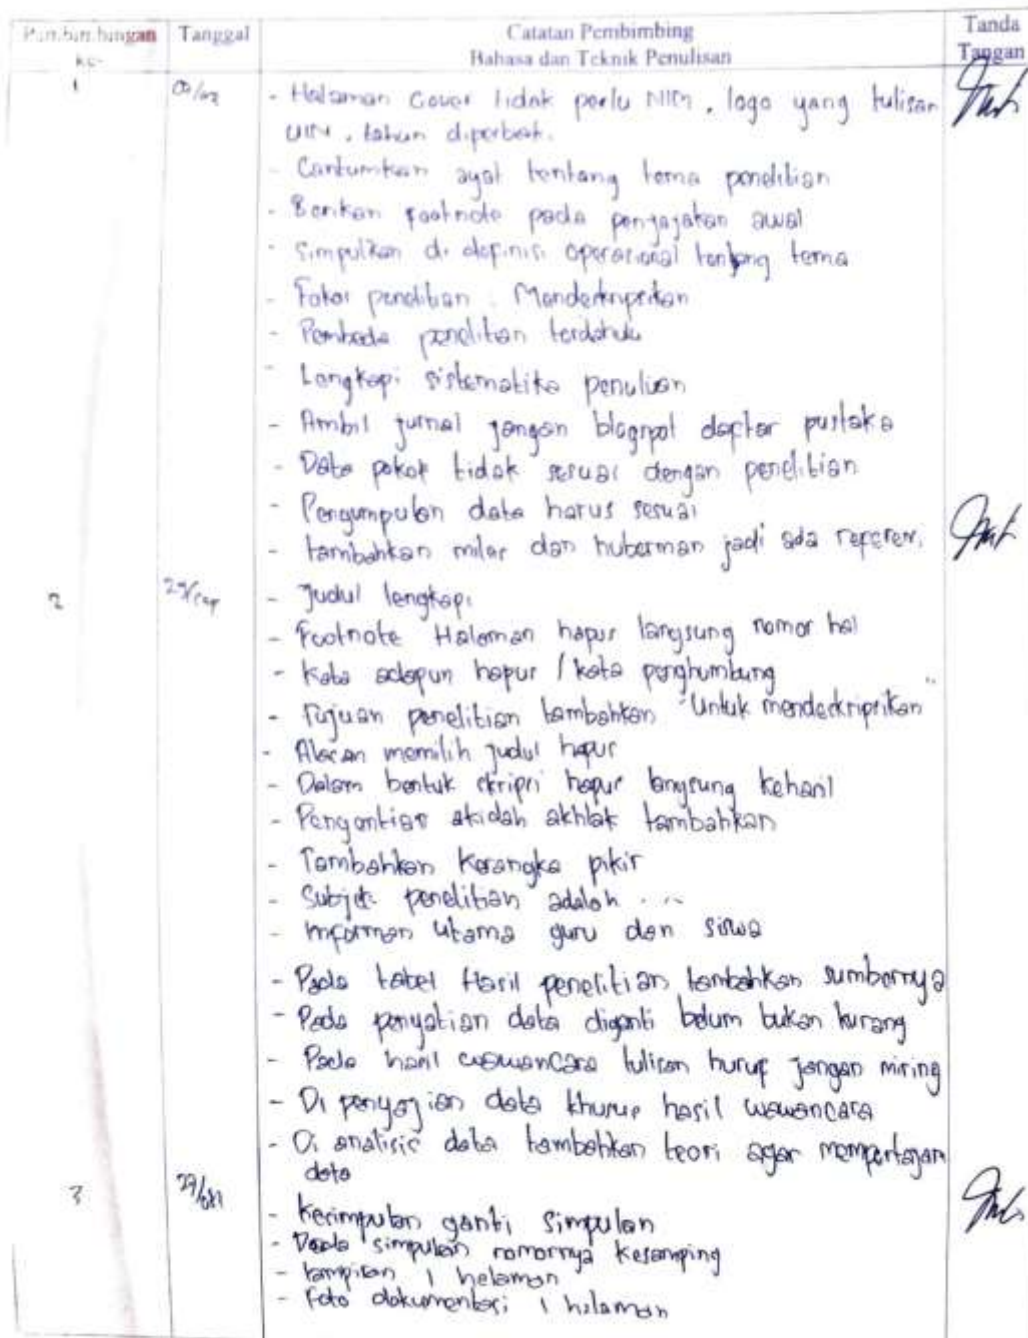 Pembimbingan ke-
Tanggal
Catatan Pembimbing
Bahasa dan Teknik Penulisan
Tanda
Tangan
1
- Halaman Cover tidak perlu NIM, logo yang tulisan
UIN, tahun diperbaik.
- Cantumkan ayat tentang tema penelitian
- Berikan footnote pada penjajakan awal
- Simpulkan di definisi operasional tentang tema
- Fokos penelitian : Menderkripsikan
- Pembeda penelitian terdahulu
- Lengkapi sistematika penulisan
- Ambil jurnal jangan blogspot daftar pustaka
- Data pokok tidak sesuai dengan penelitian
- Pengumpulan data harus sesuai
- tambahkan miles dan huberman jadi ada referensi
2
- Judul lengkapi
- Footnote Halaman hapus langsung nomor hal
- Kata adapun hapus / kata penghumbung
- Tujuan penelitian tambahkan "Untuk menderkripsikan"
- Alasan memilih judul hapus
- Dalam bentuk skripsi hapus langsung kehasil
- Pengantian akidah akhlak tambahkan
- Tambahkan Kerangka pikir
- Subjek penelitian adalah ...
- Informan utama guru dan siswa
- Pada tabel Hasil penelitian tambahkan sumbernya
- Pada penyatian data diganti belum bukan kurang
- Pada hasil wawancara tulisan huruf jangan miring
- Di penyajian data khusus hasil wawancara
- Di analisis data tambahkan teori agar mempertajam
data
3
- Kesimpulan ganti Simpulan
- Pada simpulan nomornya kesamping
- lampiran 1 halaman
- Foto dokumentasi 1 halaman